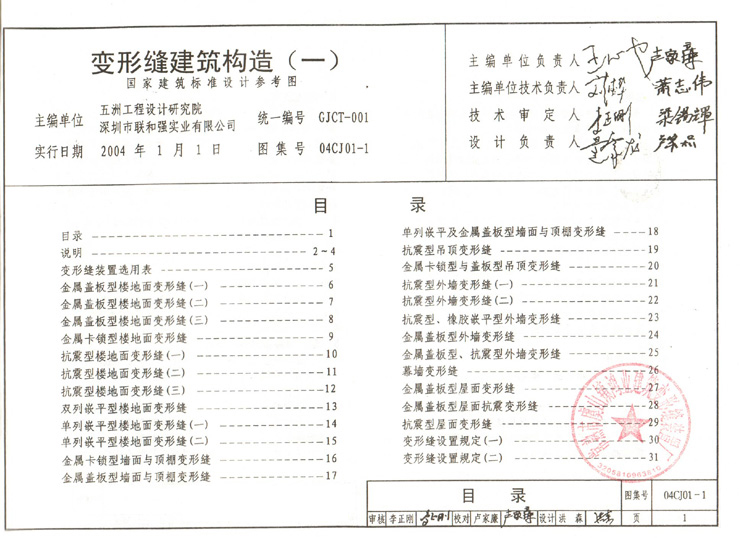 变形缝建筑构造（一）
国家建筑标准设计参考图
主编单位 五洲工程设计研究院
深圳市联和强实业有限公司
统一编号 GJCT-001
实行日期 2004 年 1 月 1 日 图集号 04CJ01-1
主编单位负责人 卢家康
主编单位技术负责人 萧志伟
技术审定人 李正刚 梁锡辉
设计负责人
目 录
目录 1
说明 2~4
变形缝装置选用表 5
金属盖板型楼地面变形缝(一) 6
金属盖板型楼地面变形缝(二) 7
金属盖板型楼地面变形缝(三) 8
金属卡锁型楼地面变形缝 9
抗震型楼地面变形缝(一) 10
抗震型楼地面变形缝(二) 11
抗震型楼地面变形缝(三) 12
双列嵌平型楼地面变形缝 13
单列嵌平型楼地面变形缝(一) 14
单列嵌平型楼地面变形缝(二) 15
金属卡锁型墙面与顶棚变形缝 16
金属盖板型墙面与顶棚变形缝 17
单列嵌平及金属盖板型墙面与顶棚变形缝 18
抗震型吊顶变形缝 19
金属卡锁型与盖板型吊顶变形缝 20
抗震型外墙变形缝(一) 21
抗震型外墙变形缝(二) 22
抗震型、橡胶嵌平型外墙变形缝 23
金属盖板型外墙变形缝 24
金属盖板型、抗震型外墙变形缝 25
幕墙变形缝 26
金属盖板型屋面变形缝 27
金属盖板型屋面抗震变形缝 28
抗震型屋面变形缝 29
变形缝设置规定(一) 30
变形缝设置规定(二) 31
目 录 图集号 04CJ01-1
审核 李正刚 校对 卢家康 设计 洪 森 页 1